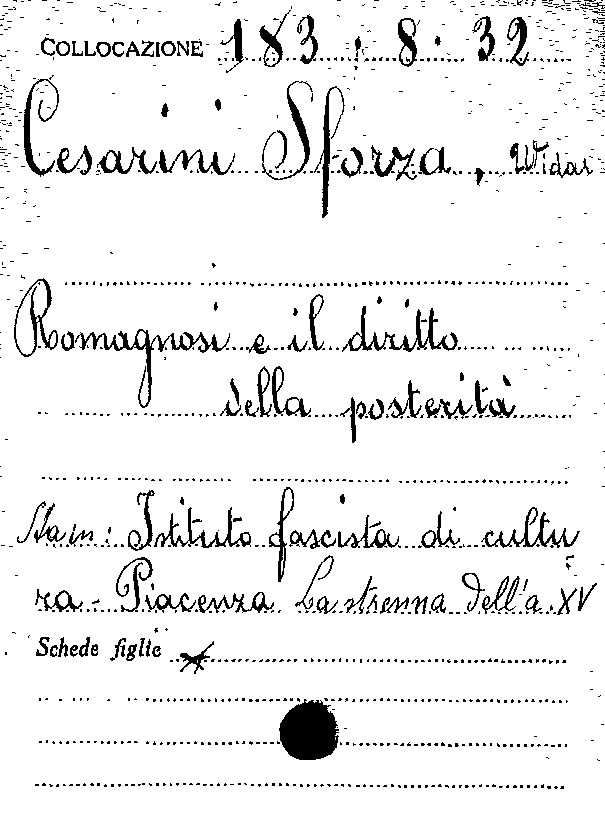 COLLOCAZIONE 183.8.32
Cesarini Sforza, Widar
Romagnosi e il diritto
della posterità
Sta in: Istituto fascista di cultu
ra - Piacenza La strenna dell'a. XV
Schede figlie